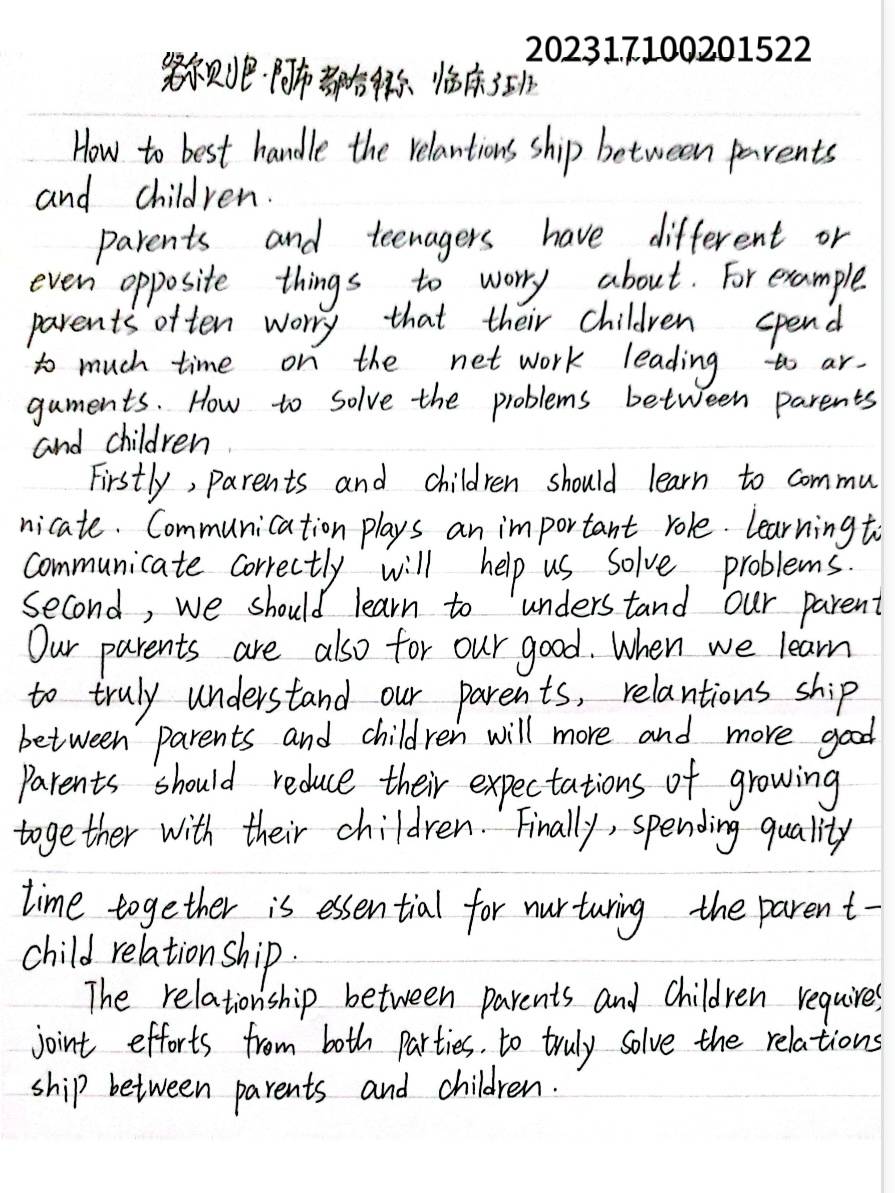 202317100201522
努尔贝比·阿布都哈力克 临床35班
How to best handle the relantions ship between parents
and children.
parents and teenagers have different or
even opposite things to worry about. For example.
parents often worry that their children spend
to much time on the net work leading to ar-
guments. How to solve the problems between parents
and children.
Firstly, parents and children should learn to commu
nicate. Communication plays an important role. Learning to
communicate correctly will help us solve problems.
Second, we should learn to understand our parent
Our parents are also for our good. When we learn
to truly understand our parents, relantions ship
between parents and children will more and more good
Parents should reduce their expectations of growing
together with their children. Finally, spending quality
time together is essential for nurturing the parent-
child relationship.
The relationship between parents and children requires
joint efforts from both parties. to truly solve the relations
ship between parents and children.